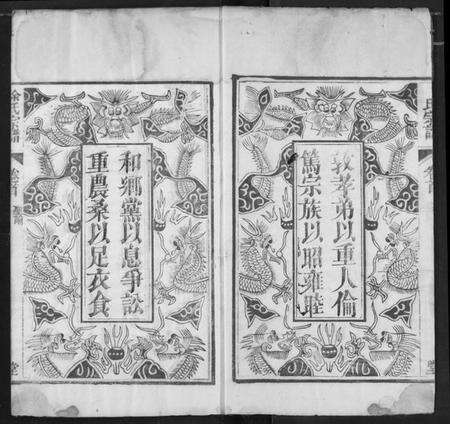 敦孝弟以重人倫
篤宗族以昭雍睦
和鄉黨以息爭訟
重農桑以足衣食
氏宗譜
卷首
堂
徐氏宗譜
卷首
堂